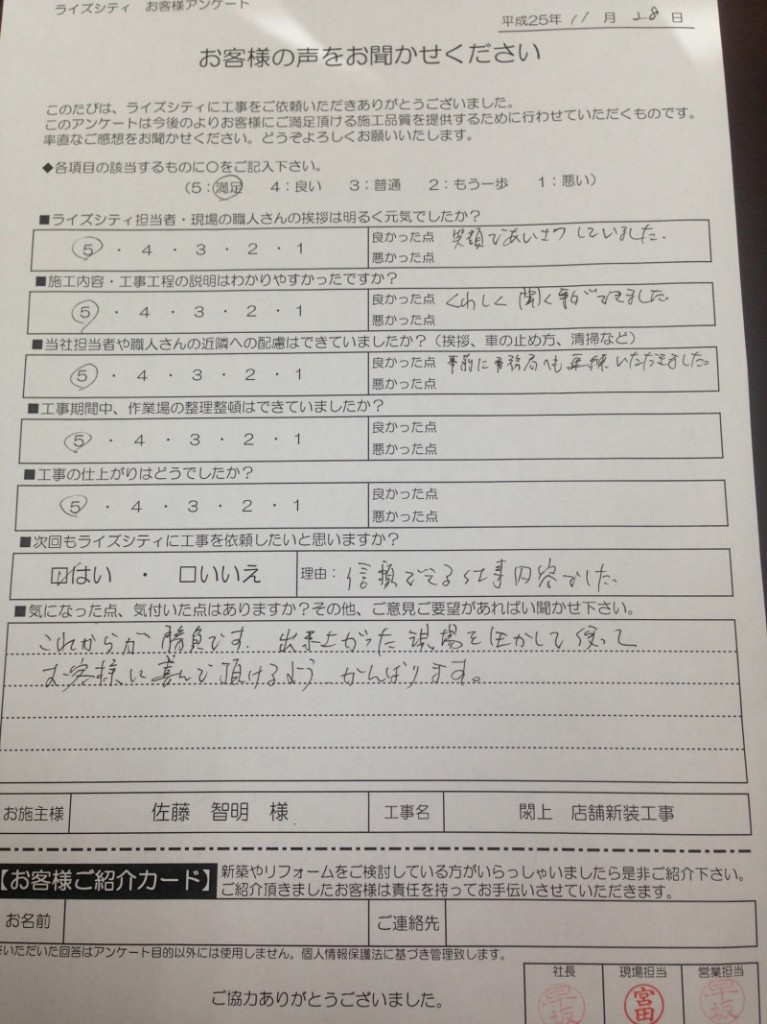 ライズシティ お客様アンケート
平成25年 11 月 28 日
お客様の声をお聞かせください
このたびは、ライズシティに工事をご依頼いただきありがとうございました。
このアンケートは今後のよりお客様にご満足頂ける施工品質を提供するために行わせていただくものです。
率直なご感想をお聞かせください。どうぞよろしくお願いいたします。
◆各項目の該当するものに○をご記入下さい。
(5：満足 4：良い 3：普通 2：もう一歩 1：悪い)
■ライズシティ担当者・現場の職人さんの挨拶は明るく元気でしたか？
5 ・ 4 ・ 3 ・ 2 ・ 1 良かった点 笑顔であいさつしていました.
悪かった点
■施工内容・工事工程の説明はわかりやすかったですか？
5 ・ 4 ・ 3 ・ 2 ・ 1 良かった点 くわしく聞く事ができました.
悪かった点
■当社担当者や職人さんの近隣への配慮はできていましたか？(挨拶、車の止め方、清掃など)
5 ・ 4 ・ 3 ・ 2 ・ 1 良かった点 事前に事務局へも連絡いただきました。
悪かった点
■工事期間中、作業場の整理整頓はできていましたか？
5 ・ 4 ・ 3 ・ 2 ・ 1 良かった点
悪かった点
■工事の仕上がりはどうでしたか？
5 ・ 4 ・ 3 ・ 2 ・ 1 良かった点
悪かった点
■次回もライズシティに工事を依頼したいと思いますか？
☑はい ・ □いいえ 理由： 信頼できる仕事内容でした.
■気になった点、気付いた点はありますか？その他、ご意見ご要望があればい聞かせ下さい。
これからが勝負です. 出来上がった現場を生かして使って
お客様に喜んで頂けるよう がんばります。
お施主様 佐藤 智明 様 工事名 閖上 店舗新装工事
【お客様ご紹介カード】 新築やリフォームをご検討している方がいらっしゃいましたら是非ご紹介下さい。
ご紹介頂きましたお客様は責任を持ってお手伝いさせていただきます。
お名前 ご連絡先
いただいた回答はアンケート目的以外には使用しません。個人情報保護法に基づき管理致します。
ご協力ありがとうございました。
社長 現場担当 営業担当
早坂 宮田 早坂